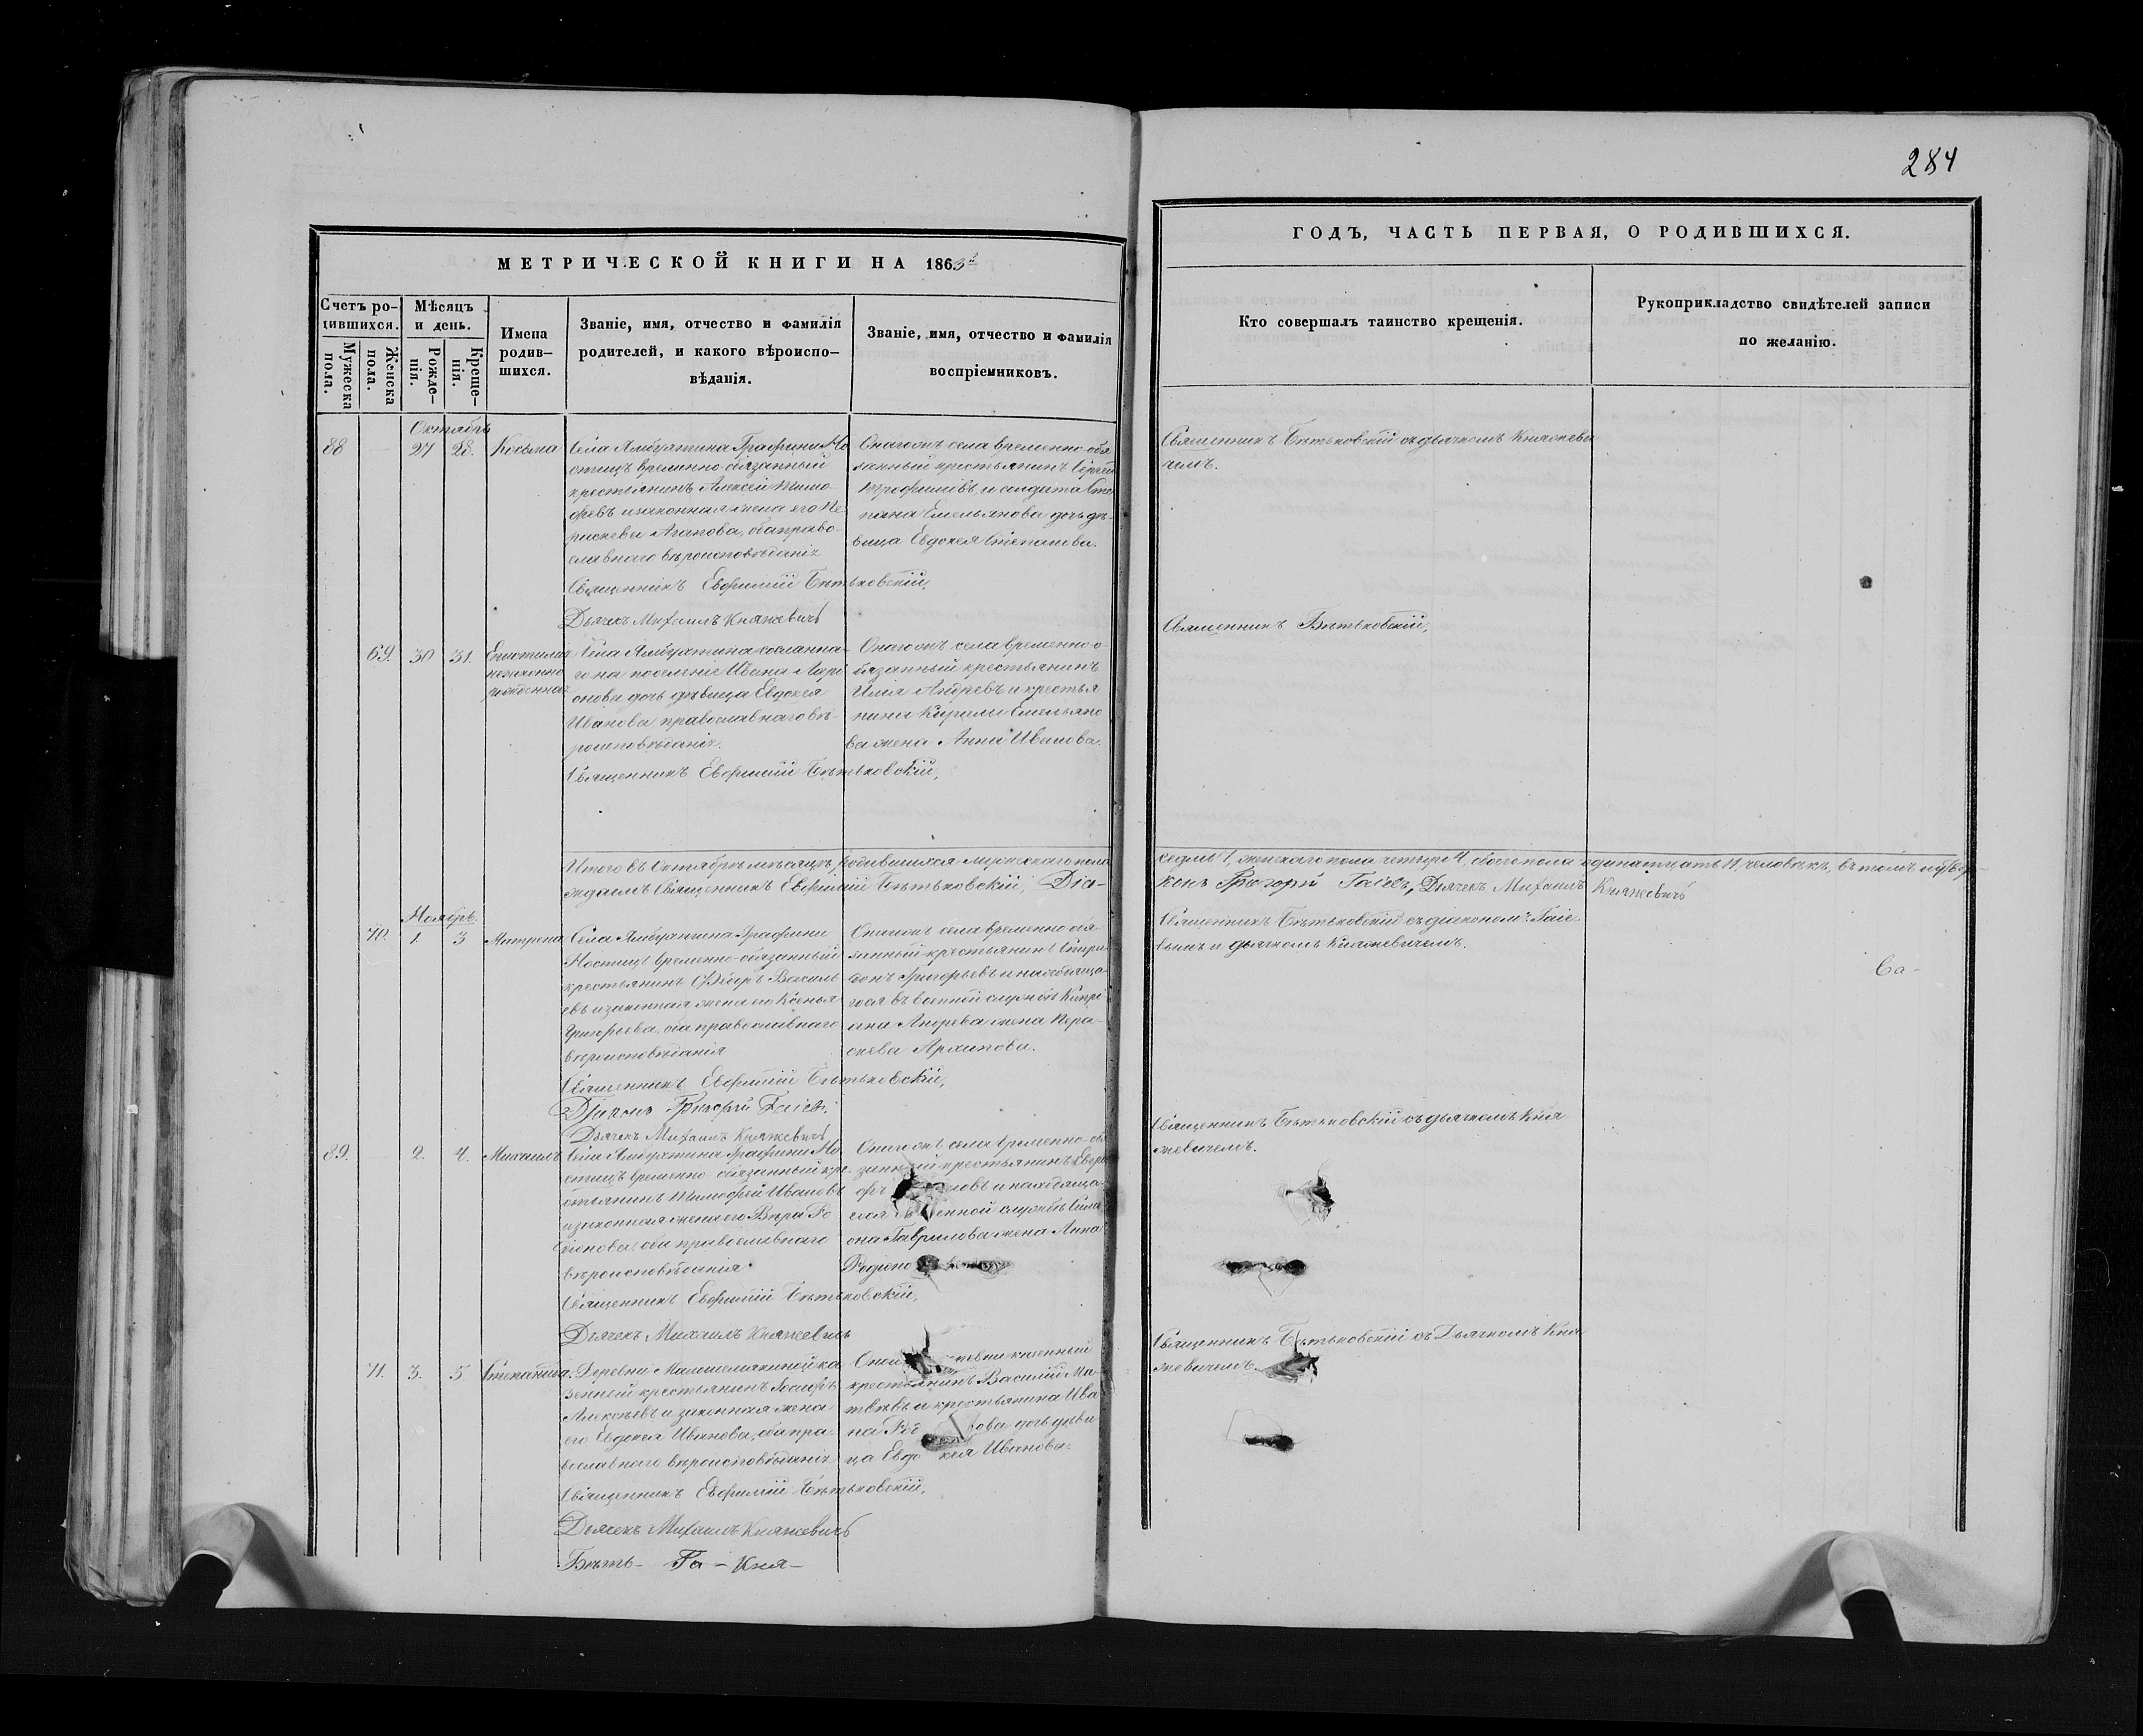 284
МЕТРИЧЕСКОЙ КНИГИ НА 1863й
Счетъ ро-
дившихся.
Мужеска
пола.
Женска
пола.
Мѣсяцъ
и день.
Рожде-
нія.
Креще-
нія.
Имена
родив-
шихся.
Званіе, имя, отчество и фамилія
родителей, и какого вѣроиспо-
вѣданія.
Званіе, имя, отчество и фамилія
воспріемниковъ.
ГОДЪ, ЧАСТЬ ПЕРВАЯ, О РОДИВШИХСЯ.
Кто совершалъ таинство крещенія.
Рукоприкладство свидѣтелей записи
по желанію.
Октябрь
88 — 27 28. Косьма
Села Ямбухтина Графини Но
стицъ временно-обязанный
крестьянинъ Алексѣй Тимо-
феевъ и законная жена его Пе
раскева Агапова, оба право-
славнаго вѣроисповѣданія
Священникъ Евфимій Бѣтьковскій,
Дьячекъ Михаилъ Княжевичъ
Онагожъ села временно-обя
занный крестьянинъ Сергѣй
Трофимовъ и солдата Сте
пана Емельянова дочь дѣ-
вица Евдокея Степанова.
Священникъ Бѣтьковскій съ дьячкомъ Княжеви
чемъ.
69. 30 31. Епистимія
незаконно
рожденная
Села Ямбухтина сосланна-
го на поселеніе Ивана Лари
онова дочь дѣвица Евдокея
Иванова православнаго вѣ-
роисповѣданія.
Священникъ Евфимій Бѣтьковскій,
Онагожъ села временно-о
бязанный крестьянинъ
Илія Андреевъ и крестья
нина Кирилы Емельяно
ва жена Анна Иванова.
Священникъ Бѣтьковскій,
Итого въ Октябрѣ мѣсяцѣ родившихся мужескаго пола седмь 7, женскаго пола четыре 4, обоего пола одинатцать 11, человѣкъ, въ томъ
ждаемъ Священникъ Евфимій Бѣтьковскій, Діа-
конъ Григорій Гаіевъ, Дьячекъ Михаилъ Княжевичъ
Ноябрь
70. 1. 3 Матрена
Села Ямбухтина Графини
Ностицъ временно-обязанный
крестьянинъ Ѳедоръ Василь
евъ и законная жена его Ксенья
Григорьева, оба православнаго
вѣроисповѣданія
Священникъ Евфимій Бѣтьковскій,
Діаконъ Григорій Гаіевъ,
Дьячекъ Михаилъ Княжевичъ
Онагожъ села временно-обя-
занный крестьянинъ Спири-
донъ Григорьевъ и находяща-
гося въ военной службѣ Кипрі
ана Андреева жена Пера-
скева Архипова.
Священникъ Бѣтьковскій съ діакономъ Гаіе-
вымъ и дьячкомъ Княжевичемъ.
Са-
89. — 2. 4. Михаилъ
Села Ямбухтина Графини Но
стицъ временно-обязанный кре-
стьянинъ Тимофей Ивановъ
и законная жена его Вѣра Ро
діонова оба православнаго
вѣроисповѣданія
Священникъ Евфимій Бѣтьковскій,
Дьячекъ Михаилъ Княжевичъ
Онагожъ села временно-обя
занный крестьянинъ
и находяща-
гося военной службѣ Симе
она Гаврилова жена Анна
Родіоно
Священникъ Бѣтьковскій съ дьячкомъ Кня
жевичемъ.
71. 3. 5. Степанида.
Деревни ка
зенный крестьянинъ Іосифъ
Алексѣевъ и законная жена
его Евдокея Иванова, оба пра-
вославнаго вѣроисповѣданія
Священникъ Евфимій Бѣтьковскій,
Дьячекъ Михаилъ Княжевичъ
казенный
крестьянинъ Василій Ма-
твѣевъ и крестьянина Ива
на дочь дѣви
ца Евдокея Иванова.
Священникъ Бѣтьковскій съ Дьячкомъ Кня
жевичемъ.
Бѣть- Га- Кня-